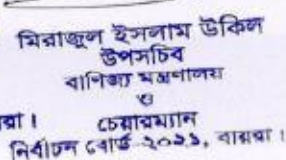 মিরাজুল ইসলাম উকিল
উপসচিব
বাণিজ্য মন্ত্রণালয়
ও
য়রা। চেয়ারম্যান
নির্বাচন বোর্ড ২০২১, বায়রা।